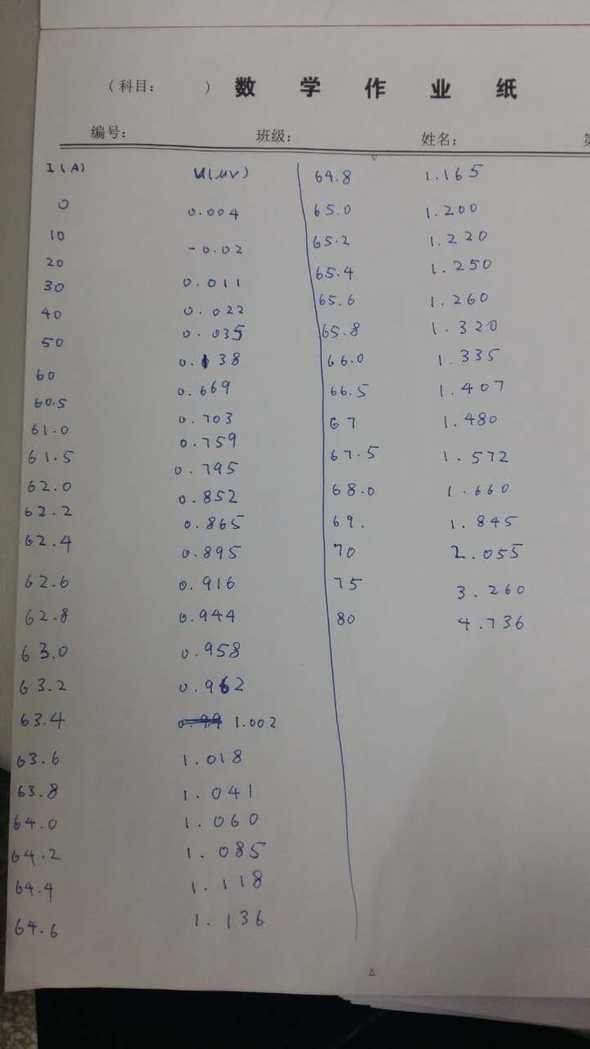 (科目: ) 数 学 作 业 纸
编号: 班级: 姓名: 第
I(A) U(μV)
0 0.004
10 -0.02
20 0.011
30 0.022
40 0.035
50 0.138
60 0.669
60.5 0.703
61.0 0.759
61.5 0.795
62.0 0.852
62.2 0.865
62.4 0.895
62.6 0.916
62.8 0.944
63.0 0.958
63.2 0.962
63.4 1.002
63.6 1.018
63.8 1.041
64.0 1.060
64.2 1.085
64.4 1.118
64.6 1.136
64.8 1.165
65.0 1.200
65.2 1.220
65.4 1.250
65.6 1.260
65.8 1.320
66.0 1.335
66.5 1.407
67 1.480
67.5 1.572
68.0 1.660
69. 1.845
70 2.055
75 3.260
80 4.736